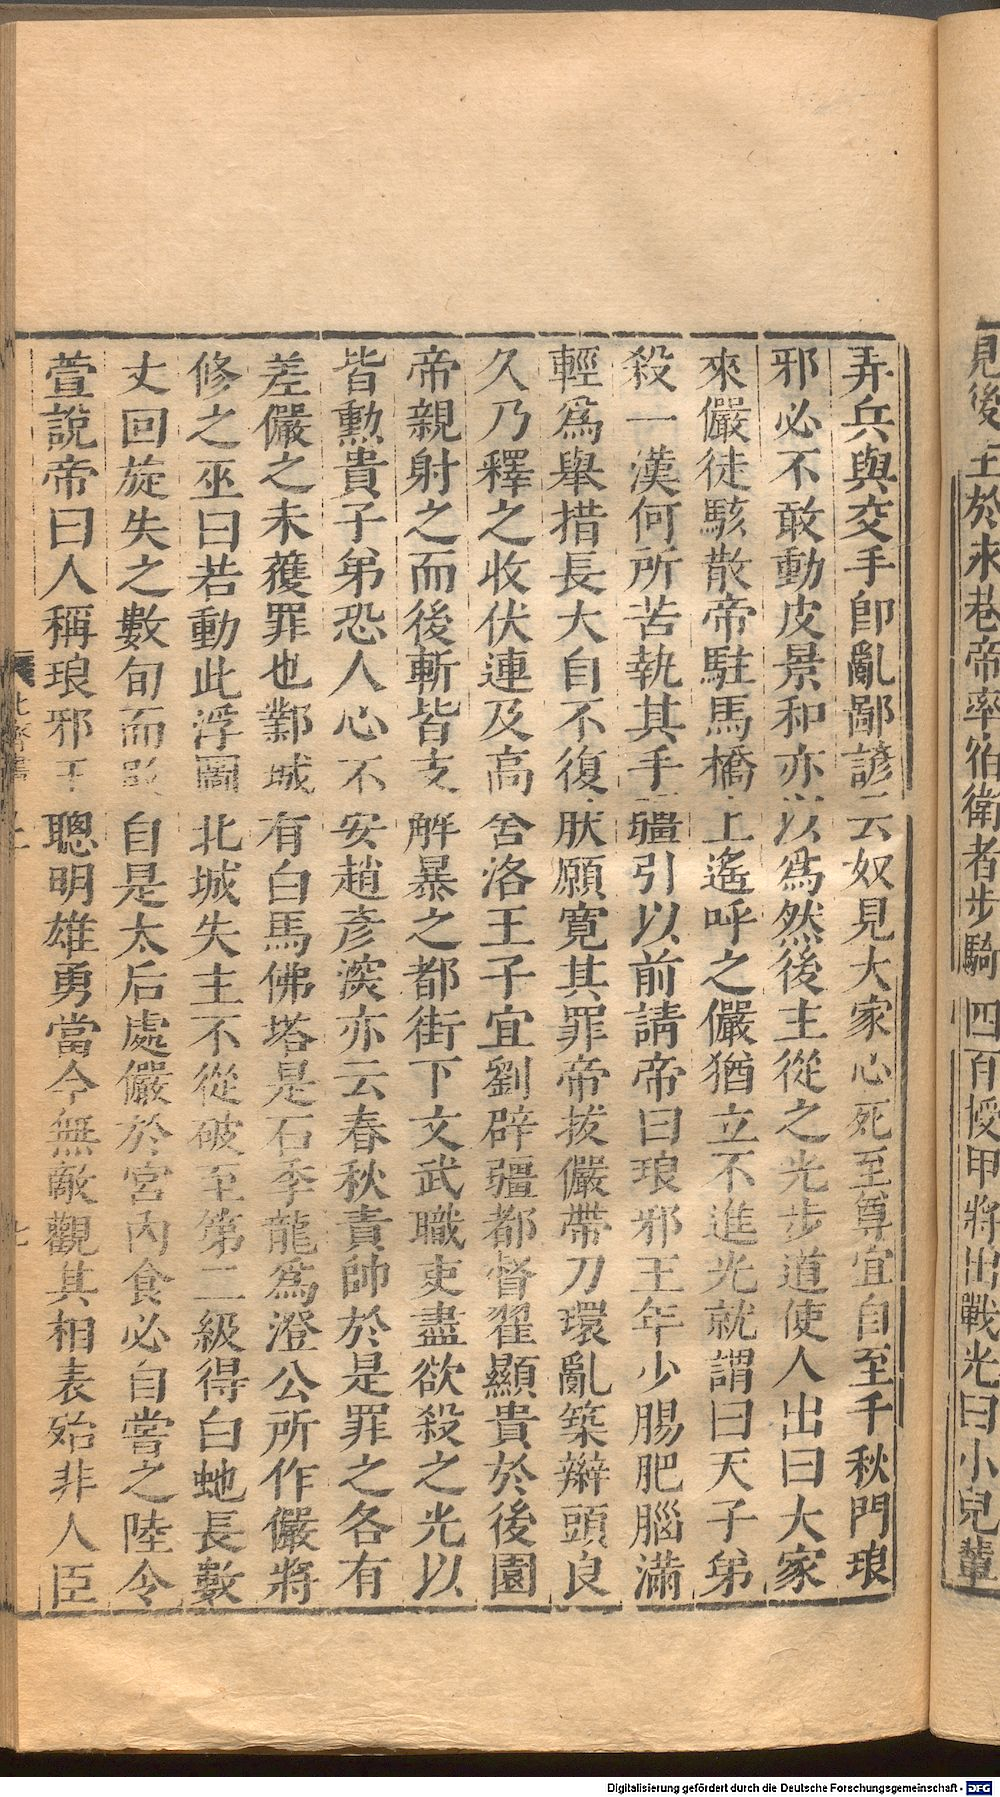 見後主於永巷帝率宿衛者步騎四百授甲將出戰光曰小兒輩
弄兵與交手卽亂鄙諺云奴見大家心死至尊宜自至千秋門琅
邪必不敢動皮景和亦以爲然後主從之光步道使人出曰大家
來儼徒駭散帝駐馬橋上遙呼之儼猶立不進光就謂曰天子弟
殺一漢何所苦執其手彊引以前請帝曰琅邪王年少腸肥腦滿
輕爲舉措長大自不復然願寬其罪帝拔儼帶刀環亂築辮頭良
久乃釋之收伏連及高舍洛王子宜劉辟疆都督翟顯貴於後園
帝親射之而後斬皆支解暴之都街下文武職吏盡欲殺之光以
皆勳貴子弟恐人心不安趙彥深亦云春秋責帥於是罪之各有
差儼之未獲罪也鄴城有白馬佛塔是石季龍爲澄公所作儼將
修之巫曰若動此浮圖北城失主不從破至第二級得白虵長數
丈回旋失之數旬而敗自是太后處儼於宮內食必自嘗之陸令
萱說帝曰人稱琅邪王聰明雄勇當今無敵觀其相表殆非人臣
北齊書
Digitalisierung gefördert durch die Deutsche Forschungsgemeinschaft - DFG